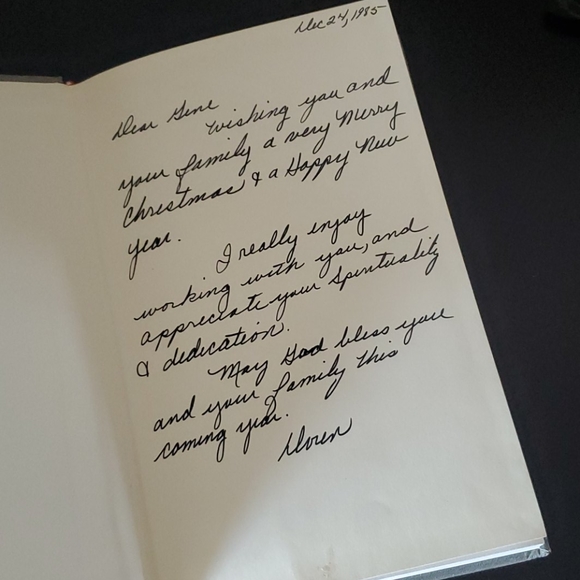 Dec 24, 1985
Dear Gene
Wishing you and
your family a very Merry
Christmas & a Happy New
year.
I really enjoy
working with you, and
appreciate your Spirituality
& dedication.
May God bless you
and your family this
coming year.
Doren